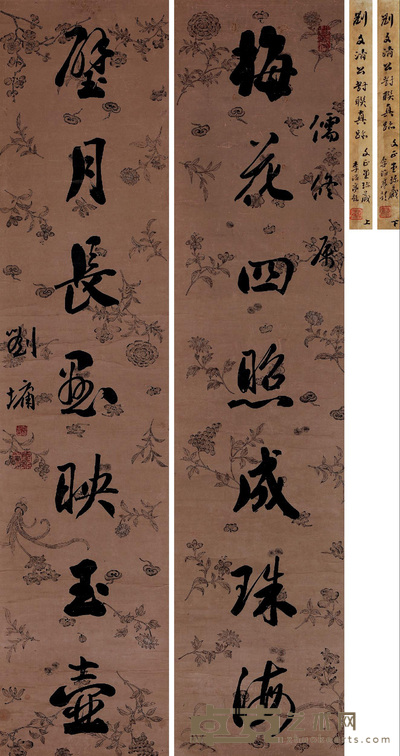 梅花四照成珠海
儒修屬
璧月長懸映玉壺
劉墉
劉文清公對聯真跡
上
劉文清公對聯真跡
下